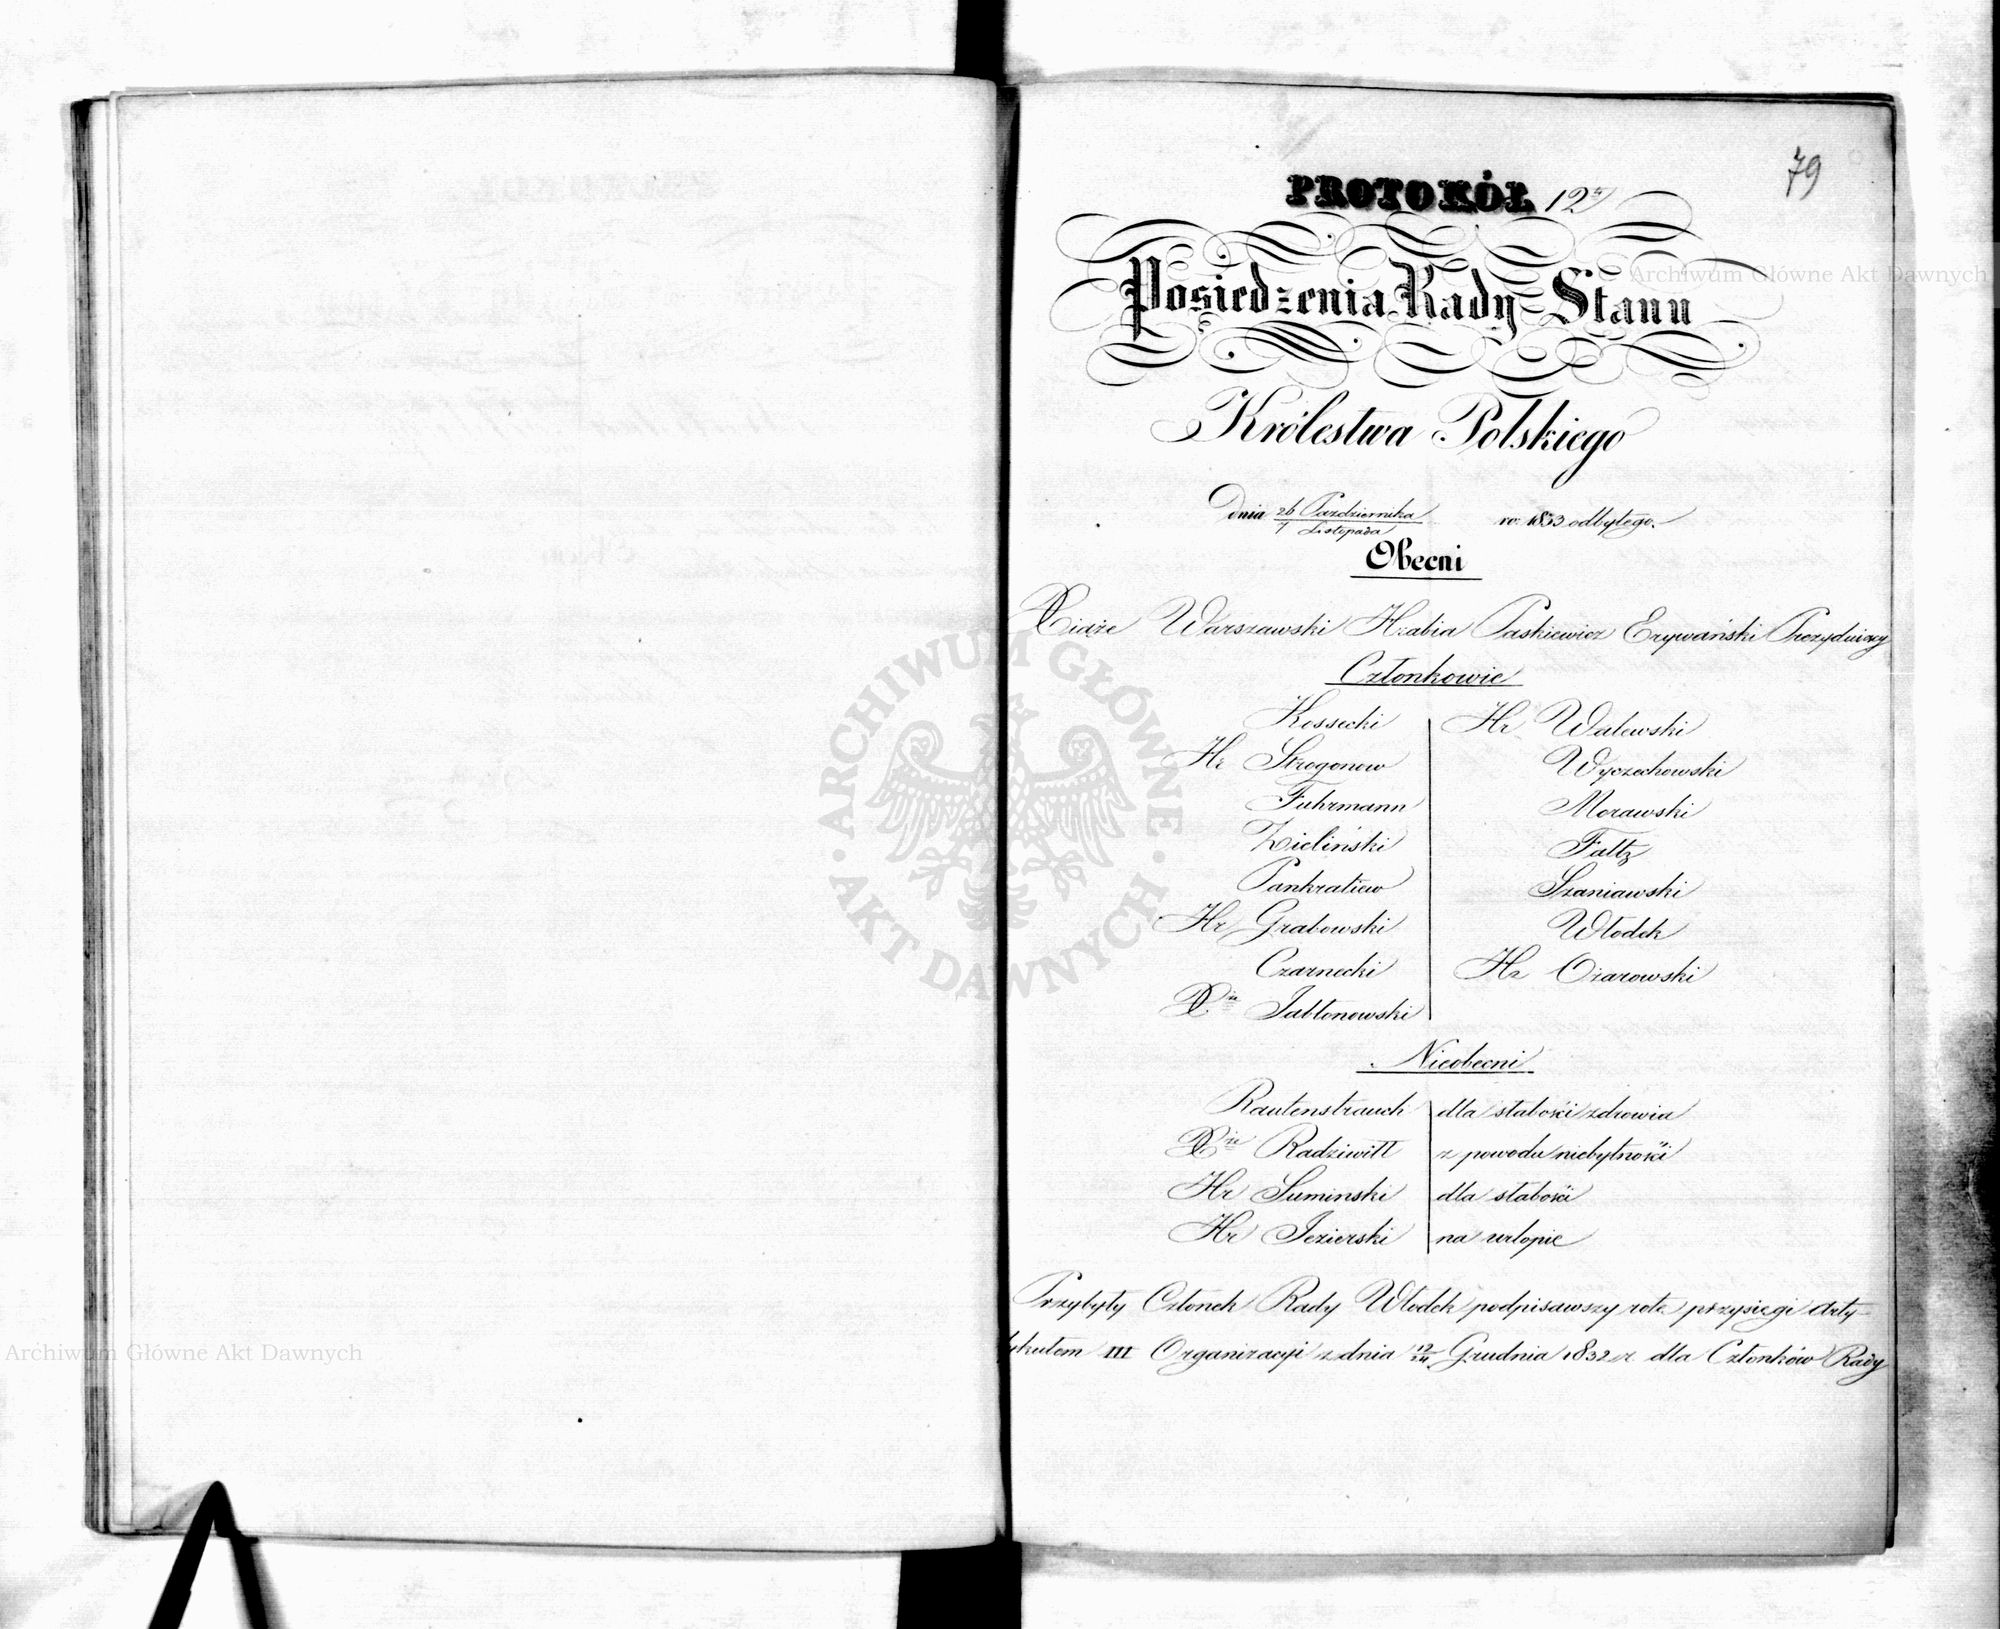 79
PROTOKÓŁ 12ty
Posiedzenia Rady Stanu
Królestwa Polskiego
Dnia 26 Października / 7 Listopada ro: 1833 odbytego.
Obecni
Xiąże Warszawski Hrabia Paskiewicz Erywański Prezydujący
Członkowie
Kossecki
Hr Strogonow
Fuhrmann
Zieliński
Pankratiew
Hr Grabowski
Czarnecki
Xże Jabłonowski
Hr Walewski
Wyczechowski
Morawski
Faltz
Szaniawski
Włodek
Hr Ożarowski
Nieobecni
Rautenstrauch dla słabości zdrowia
Xże Radziwiłł z powodu niebytności
Hr Suminski dla słabości
Hr Jezierski na urlopie
Przybyły Członek Rady Włodek podpisawszy rotę przysięgi Arty-
kułem III Organizacyi z dnia 12/24 Grudnia 1832 r. dla Członków Rady
Archiwum Główne Akt Dawnych
Archiwum Główne Akt Dawnych
ARCHIWUM GŁÓWNE AKT DAWNYCH